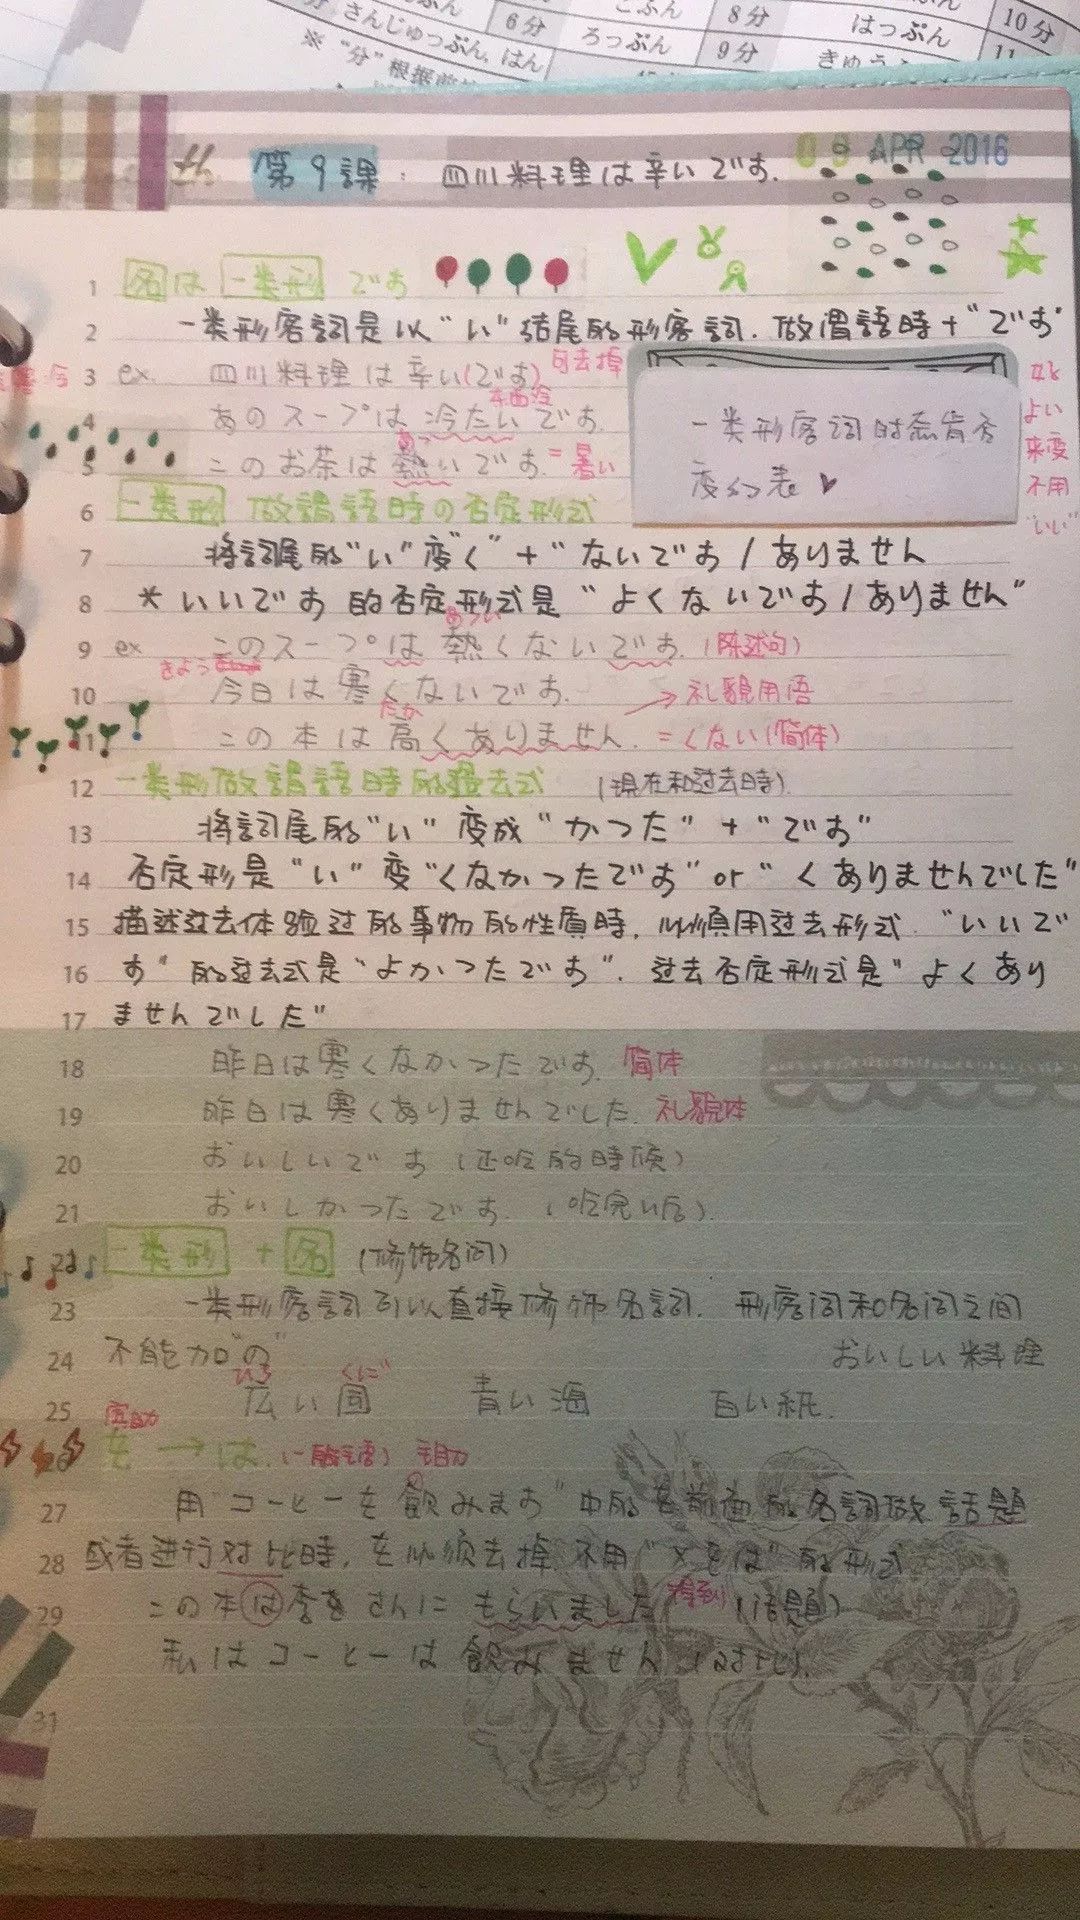 6分
ろっぷん
8分
はっぷん
10分
さんじゅっぷん、はん
9分
※ "分" 根据
第9課. 四川料理は辛いです.
09 APR 2016
1 名は 一类形 です
2 一类形容詞是以"い"结尾的形容詞. 做谓語時+"です"
3 ex. 四川料理は辛い(です) 可去掉
4 あのスープは冷たいです.
5 このお茶は熱いです. = 暑い
一类形容词时态肯否
变幻表
よい
来变
不用
"いい"
6 一类形 做謂語時の否定形式
7 将詞尾的"い"变"く"+"ないです/ありません
8 * いいです 的否定形式是"よくないです/ありません"
あつい
9 ex このスープは熱くないです. (陈述句)
きょう
10 今日は寒くないです. → 礼貌用语
たか
11 この本は高くありません. = くない(简体)
12 一类形做謂語時的過去式 (现在和过去時)
13 将詞尾的"い"变成"かった"+"です"
14 否定形是"い"变"くなかったです"or"くありませんでした"
15 描述过去体验过的事物的性質時, 必須用过去形式. "いいで
16 す"的过去式是"よかったです". 过去否定形式是"よくあり
17 ませんでした"
18 昨日は寒くなかったです. 简体
19 昨日は寒くありませんでした. 礼貌体
20 おいしいです (还吃的時候)
21 おいしかったです. (吃完以后).
22 一类形 + 名 (修饰名词)
23 一类形容詞可以直接修饰名詞. 形容词和名词之间
24 不能加"の" おいしい料理
ひろ くに
25 広い国 青い海 白い紙.
26 を → は.
27 用"コーヒーを飲みます"中的を前面的名詞做話題
28 或者进行对比時, を必须去掉 不用"×をは"的形式
29 この本は李さんにもらいました 得到 (话題)
私はコーヒーは飲みません (对比).
31